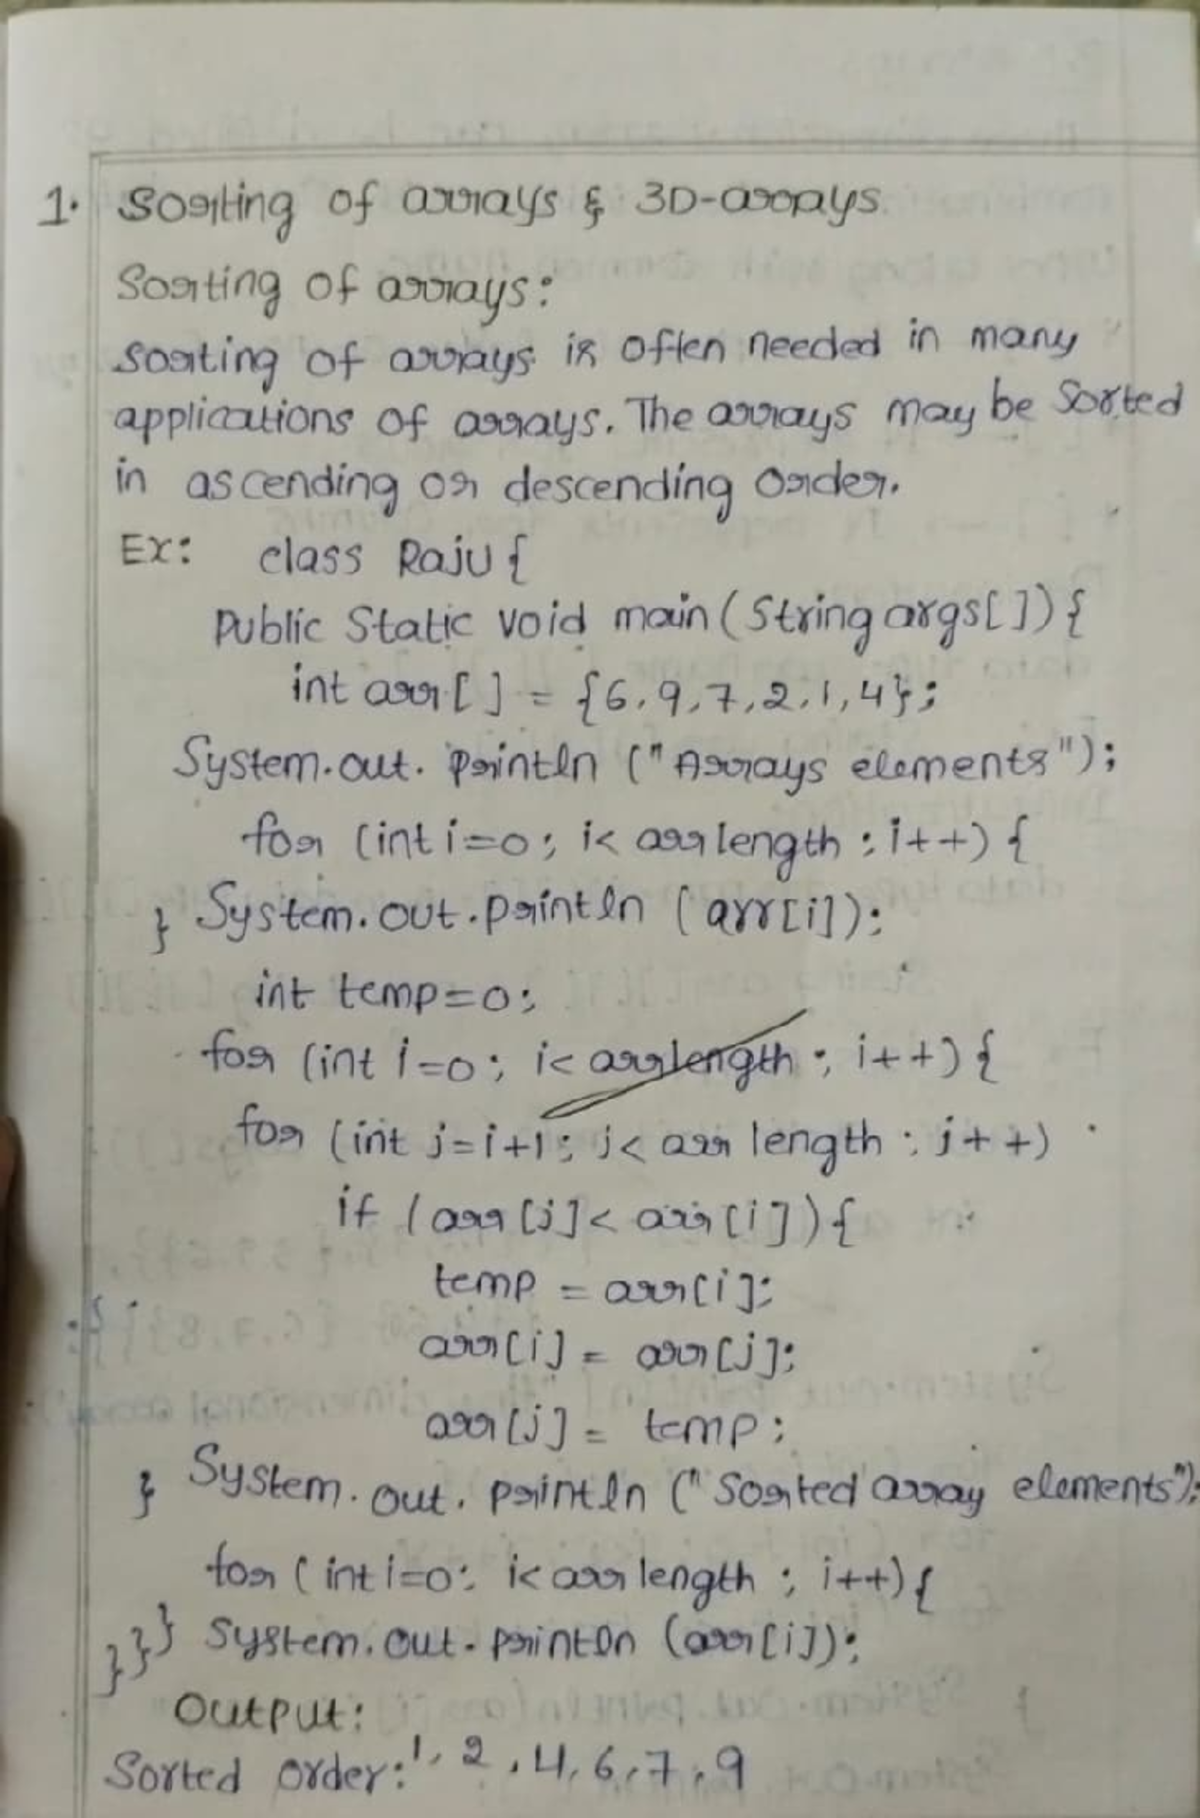 1. Sorting of arrays & 3D-arrays
Sorting of arrays:
Sorting of arrays is often needed in many
applications of arrays. The arrays may be Sorted
in ascending or descending order.
Ex: class Raju {
Public Static void main (String args[ ]) {
int arr[ ] = {6,9,7,2,1,4};
System.out. println ("Arrays elements");
for (int i=0; i< arr length ; i++) {
} System.out.println (arr[i]);
int temp=0;
for (int i=0; i< arrlength ; i++) {
for (int j=i+1; j< arr length ; j++)
if (arr [j]< arr [i]) {
temp = arr[i];
arr[i] = arr[j];
arr[j] = temp;
} System. out. println ("Sorted array elements");
for (int i=0; i< arr length ; i++) {
}}} System. out. println (arr[i]);
Output:
Sorted order: 1, 2, 4, 6, 7, 9